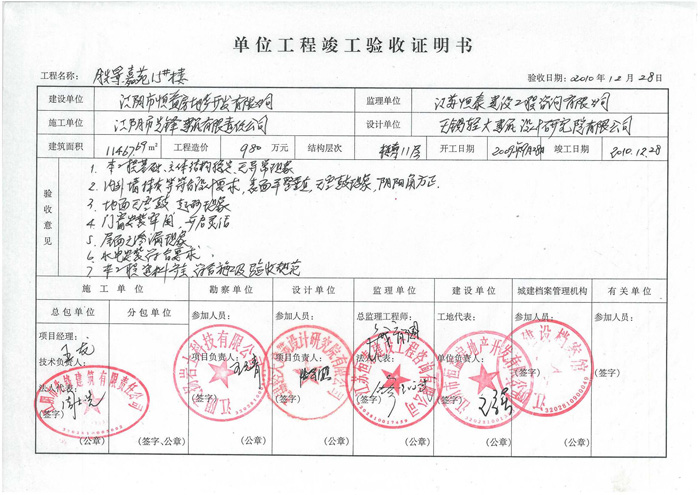 单位工程竣工验收证明书
工程名称： 嘉苑15#楼 验收日期：2010年12月28日
建设单位 江阴市恒益房地产开发有限公司 监理单位 江苏恒泰建设工程咨询有限公司
施工单位 江阴市 建筑有限责任公司 设计单位 无锡轻大建筑设计研究院有限公司
建筑面积 m² 工程造价 980 万元 结构层次 框剪11层 开工日期 竣工日期 2010.12.28
验收意见
1. 本工程基础、主体结构稳定，无异常现象
2. 内外墙 符合设计要求，表面平整 ，无空鼓现象，阴阳角方正.
3. 地面无空鼓 起砂现象
4. 门窗安装牢固，开启灵活
5. 屋面无渗漏现象
6. 水电安装符合要求
7. 本工程资料齐全 符合施工及验收规范
施工单位 勘察单位 设计单位 监理单位 建设单位 城建档案管理机构 有关单位
总包单位 分包单位 参加人员： 参加人员： 总监理工程师： 工地代表： 参加人员： 参加人员：
项目经理：
技术负责人： 项目负责人： 项目负责人： 法人代表： 单位负责人：
(签字) (签字) (签字) (签字) (签字)
(公章) (签字、公章) (公章) (公章) (公章) (公章) (签字、公章) (签字、公章)